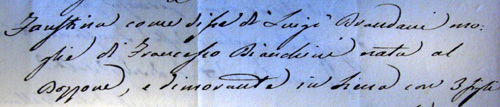 Faustina come disse di Luigi Brandani mo:
glie di Francesco Bianchini nata al
Bozzone, e dimorante in Siena con 3 figli